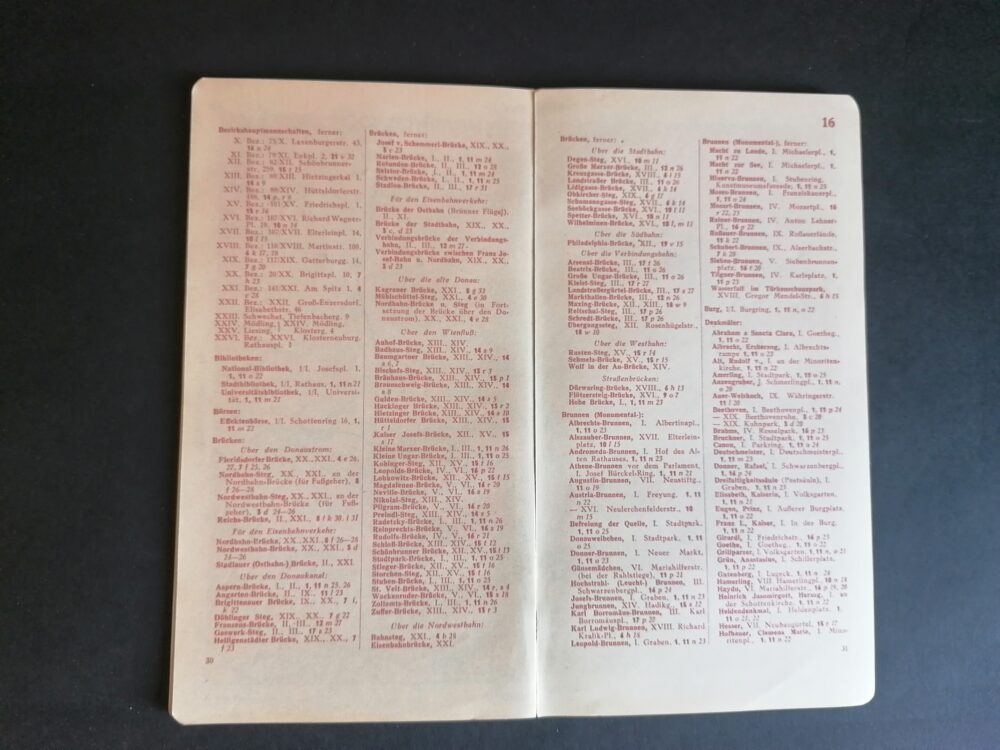 Bezirkshauptmannschaften, ferner:
X. Bez.: 75/X. Laxenburgerstr. 43,
XI. Bez.: 79/XI. Enkpl. 2, 21 v 32
XII. Bez.: 82/XII. Schönbrunner-
str. 259, 15 s 15
XIII. Bez.: 88/XIII. Hietzingerkai 1,
14 s 9
XIV. Bez.: 89/XIV. Hütteldorferstr.
XV. Bez.: 101/XV. Friedrichspl. 1,
XVI. Bez.: 107/XVI. Richard Wagner-
XVII. Bez.: 107/XVII. Elterleinpl. 14,
10 l 15
XVIII. Bez.: 110/XVIII. Martinstr. 100,
XIX. Bez.: 117/XIX. Gatterburgg. 14,
7 g 20
XX. Bez.: 20/XX. Brigittapl. 10, 7
h 23
XXI. Bez.: 141/XXI. Am Spitz 1, 4
XXII. Bez.: XXII. Groß-Enzersdorf,
Elisabethstr. 46
XXIII. Schwechat, Tiefenbacherg. 9
XXIV. Mödling, XXIV. Mödling,
XXV. Liesing, Klosterg. 4
XXVI. Bez.: XXVI. Klosterneuburg,
Rathauspl. 1
Bibliotheken:
National-Bibliothek, 1/I. Josefspl. 1,
1, 11 o 22
Stadtbibliothek, 1/I. Rathaus, 1, 11 n 21
Universitätsbibliothek, 1/I. Universi-
tät, 1, 11 m 21
Börsen:
Effektenbörse, 1/I. Schottenring 16, 1,
11 m 22
Brücken:
Über den Donaustrom:
Floridsdorfer Brücke, XX., XXI., 4 e 26,
27, 7 f 25, 26
Nordbahn-Steg, XX., XXI., an der
Nordbahn-Brücke (für Fußgeher), 8
f 26—28
Nordwestbahn-Steg, XX., XXI., an der
Nordwestbahn-Brücke (für Fuß-
geher), 5 d 24—26
Reichs-Brücke, II., XXI., 8 i k 30, l 31
Für den Eisenbahnverkehr:
Nordbahn-Brücke, XX., XXI., 8 f 26—28
Nordwestbahn-Brücke, XX., XXI., 5 d
24—26
Stadlauer (Ostbahn-) Brücke, II., XXI.
Über den Donaukanal:
Aspern-Brücke, I., II., 1, 11 n 25, 26
Augarten-Brücke, II., IX., 11 l 23
Brigittenauer Brücke, IX., XX., 7 i,
k 22
Döblinger Steg, XIX., XX., 7 g 22
Franzens-Brücke, II., III., 12 m 27
Gaswerk-Steg, II., III., 17 s 23
Heiligenstädter Brücke, XIX., XX., 7
f 23
30
Brücken, ferner:
Josef v. Schemmerl-Brücke, XIX., XX.,
5 c 23
Marien-Brücke, I., II., 1, 11 m 24
Rotunden-Brücke, II., III., 12 o 28
Salztor-Brücke, I., II., 1, 11 m 24
Schweden-Brücke, I., II., 1, 11 n 25
Stadion-Brücke, II., III., 17 r 31
Für den Eisenbahnverkehr:
Brücke der Ostbahn (Brünner Flügel),
II., XI.
Brücke der Stadtbahn, XIX., XX.,
5 c, d 23
Verbindungsbrücke der Verbindungs-
bahn, II., III., 12 m 27
Verbindungsbrücke zwischen Franz Jo-
sef-Bahn u. Nordbahn, XIX., XX.,
5 d 23
Über die alte Donau:
Kagraner Brücke, XXI., 8 g 31
Mühlschüttel-Steg, XXI., 4 e 30
Nordbahn-Brücke u. Steg (in Fort-
setzung der Brücke über den Do-
naustrom), XX., XXI., 4 e 28
Über den Wienfluß:
Auhof-Brücke, XIII., XIV.
Badhaus-Steg, XIII., XIV., 14 s 9
Baumgartner Brücke, XIII., XIV., 14
s 6, 7
Bischofs-Steg, XIII., XIV., 13 r 3
Bräuhaus-Brücke, XIII., XIV., 13 p 1
Braunschweig-Brücke, XIII., XIV., 14
s 8
Gulden-Brücke, XIII., XIV., 14 s 5
Hackinger Brücke, XIII., XIV., 13 r 2
Hietzinger Brücke, XIII., XIV., 14 s 10
Hütteldorfer Brücke, XIII., XIV., 13
r 1
Kaiser Josefs-Brücke, XII., XV., 15
s 17
Kleine Marxer-Brücke, I., III., 1, 11 n 26
Kleine Ungar-Brücke, I., III., 1, 11 o 25
Kobinger-Steg, XII., XV., 15 t 16
Leopolds-Brücke, IV., VI., 16 p 22
Lobkowitz-Brücke, XII., XV., 15 t 15
Magdalenen-Brücke, V., VI., 16 r 20
Neville-Brücke, V., VI., 16 s 19
Nikolai-Steg, XIII., XIV.
Pilgram-Brücke, V., VI., 16 r 20
Preindl-Steg, XIII., XIV., 14 s 5
Radetzky-Brücke, I., III., 1, 11 n 26
Reinprechts-Brücke, V., VI., 16 s 19
Rudolfs-Brücke, IV., V., 16 r 21
Schloß-Brücke, XIII., XIV., 15 t 12
Schönbrunner Brücke, XII., XV., 15 t 13
Stadtpark-Brücke, I., III., 1, 11 o 25
Stieger-Brücke, XII., XV., 15 t 16
Storchen-Steg, XII., XV., 15 t 16
Stuben-Brücke, I., III., 1, 11 o 25
St. Veit-Brücke, XIII., XIV., 14 r, s 4
Wackenroder-Brücke, V., VI., 15 s 18
Zollamts-Brücke, I., III., 1, 11 n 26
Zuffer-Brücke, XIII., XIV., 15 t 11
Über die Nordwestbahn:
Bahnsteg, XXI., 4 b 28
Eisenbahnbrücke, XXI.
16
Brücken, ferner:
Über die Stadtbahn:
Degen-Steg, XVI., 10 m 11
Große Marxer-Brücke, III., 12 n 26
Kreuzgasse-Brücke, XVIII., 6 i 15
Landstraßer Brücke, III., 11 o 26
Lidlgasse-Brücke, XVII., 6 k 14
Obkircher-Steg, XIX., 6 g 17
Schumanngasse-Steg, XVII., 6 k 14
Seeböckgasse-Brücke, XVI., 10 l 11
Spetter-Brücke, XVI., 10 n 11
Wilhelminen-Brücke, XVI., 10 l, m 11
Über die Südbahn:
Philadelphia-Brücke, XII., 19 v 15
Über die Verbindungsbahn:
Arsenal-Brücke, III., 17 t 26
Beatrix-Brücke, III., 11 o 26
Große Ungar-Brücke, III., 11 o 26
Kleist-Steg, III., 17 r 27
Landstraßergürtel-Brücke, III., 17 s 27
Markthallen-Brücke, III., 12 n 26
Maxing-Brücke, XII., XIII., 18 w 9
Reitschul-Steg, III., 17 p 26
Schredt-Brücke, III., 17 p 26
Übergangssteg, XII. Rosenhügelstr.,
18 w 10
Über die Westbahn:
Rusten-Steg, XV., 15 r 14
Schmelz-Brücke, XV., 15 r 15
Wolf in der Au-Brücke, XIV.
Straßenbrücken:
Dürwaring-Brücke, XVIII., 6 h 13
Flötzersteig-Brücke, XVI., 9 o 7
Hohe Brücke, I., 1, 11 m 23
Brunnen (Monumental-):
Albrechts-Brunnen, I. Albertinapl.,
1, 11 o 23
Alszauber-Brunnen, XVII. Elterlein-
platz, 10 l 15
Andromeda-Brunnen, I. Hof des Al-
ten Rathauses, 1, 11 n 23
Athene-Brunnen vor dem Parlament,
I. Josef Bürckel-Ring, 1, 11 n 21
Augustin-Brunnen, VII. Neustiftg.,
11 o 19
Austria-Brunnen, I. Freyung, 1, 11
n 22
— XVI. Neulerchenfelderstr., 10
m 15
Befreiung der Quelle, I. Stadtpark,
1, 11 o 25
Donauweibchen, I. Stadtpark, 1, 11
o 25
Donner-Brunnen, I. Neuer Markt,
1, 11 o 23
Gänsemädchen, VI. Mariahilferstr.
(bei der Rahlstiege), 11 p 21
Hochstrahl- (Leucht-) Brunnen, III.
Schwarzenbergpl., 16 p 24
Josefs-Brunnen, I. Graben, 1, 11 n 23
Jungbrunnen, XIV. Hadikg., 15 s 12
Karl Borromäus-Brunnen, III. Karl
Borromäuspl., 17 p 22
Karl Ludwig-Brunnen, XVIII. Richard
Kralik-Pl., 6 h 18
Leopold-Brunnen, I. Graben, 1, 11 n 23
Brunnen (Monumental-), ferner:
Macht zu Lande, I. Michaelerpl., 1,
11 n 22
Macht zur See, I. Michaelerpl., 1,
11 n 22
Minerva-Brunnen, I. Stubenring,
Kunstmuseumsfassade, 1, 11 n 25
Moses-Brunnen, I. Franziskanerpl.,
1, 11 n 24
Mozart-Brunnen, IV. Mozartpl., 16
r 22, 23
Rainer-Brunnen, IV. Anton Lehner-
Pl., 16 p 22
Roßauer-Brunnen, IX. Roßauerlände,
11 k 22
Schubert-Brunnen, IX., Alserbachstr.,
7 k 20
Sieben-Brunnen, V. Siebenbrunnen-
platz, 16 t 20
Tilgner-Brunnen, IV. Karlsplatz, 1,
11 p 23
Wasserfall im Türkenschanzpark,
XVIII. Gregor Mendel-Str., 6 h 15
Burg, 1/I. Burgring, 1, 11 n, o 22
Denkmäler:
Abraham a Sancta Clara, I. Goetheg.,
1, 11 o 22
Albrecht, Erzherzog, I. Albrechts-
rampe 1, 11 o 23
Alt, Rudolf v., I. an der Minoriten-
kirche, 1, 11 n 22
Amerling, I. Stadtpark, 1, 11 o 25
Anzengruber, J. Schmerlingpl., 1, 11 n,
o 20
Auer-Welsbach, IX. Währingerstr.
11 l 20
Beethoven, I. Beethovenpl., 1, 11 p 24
— XIX. Beethovenruhe, 5 c 20
— XIX. Kuhnpark, 5 d 20
Brahms, IV. Resselpark, 16 p 23
Bruckner, I. Stadtpark, 1, 11 o 25
Canon, I. Parkring, 1, 11 o 24
Deutschmeister, I. Deutschmeisterpl.,
Donner, Rafael, I. Schwarzenbergpl.,
1, 16 p 24
Dreifaltigkeitssäule (Pestsäule), I.
Graben, 1, 11 n 23
Elisabeth, Kaiserin, I. Volksgarten,
1, 11 n 21
Eugen, Prinz, I. Äußerer Burgplatz,
1, 11 o 22
Franz I., Kaiser, I. In der Burg,
1, 11 n 22
Girardi, I. Friedrichstr., 16 p 23
Goethe, I. Goetheg., 1, 11 o 22
Grillparzer, I. Volksgarten, 1, 11 n, o 21
Grün, Anastasius, I. Schillerplatz,
1, 11 p 22
Gutenberg, I. Lugeck, 1, 11 n 24
Hamerling, VIII. Hamerlingpl., 10 n 18
Haydn, VI. Mariahilferstr., 16 p 19, 20
Heinrich Jasomirgott, Herzog, I. an
der Schottenkirche, 1, 11 n 22
Heldendenkmal, I. Heldenplatz, 1,
11 o 21, 22
Hesser, VII. Neubaugürtel, 15 r 17
Hofbauer, Clemens Maria, I. Mino-
ritenpl., 1, 11 n 22
31